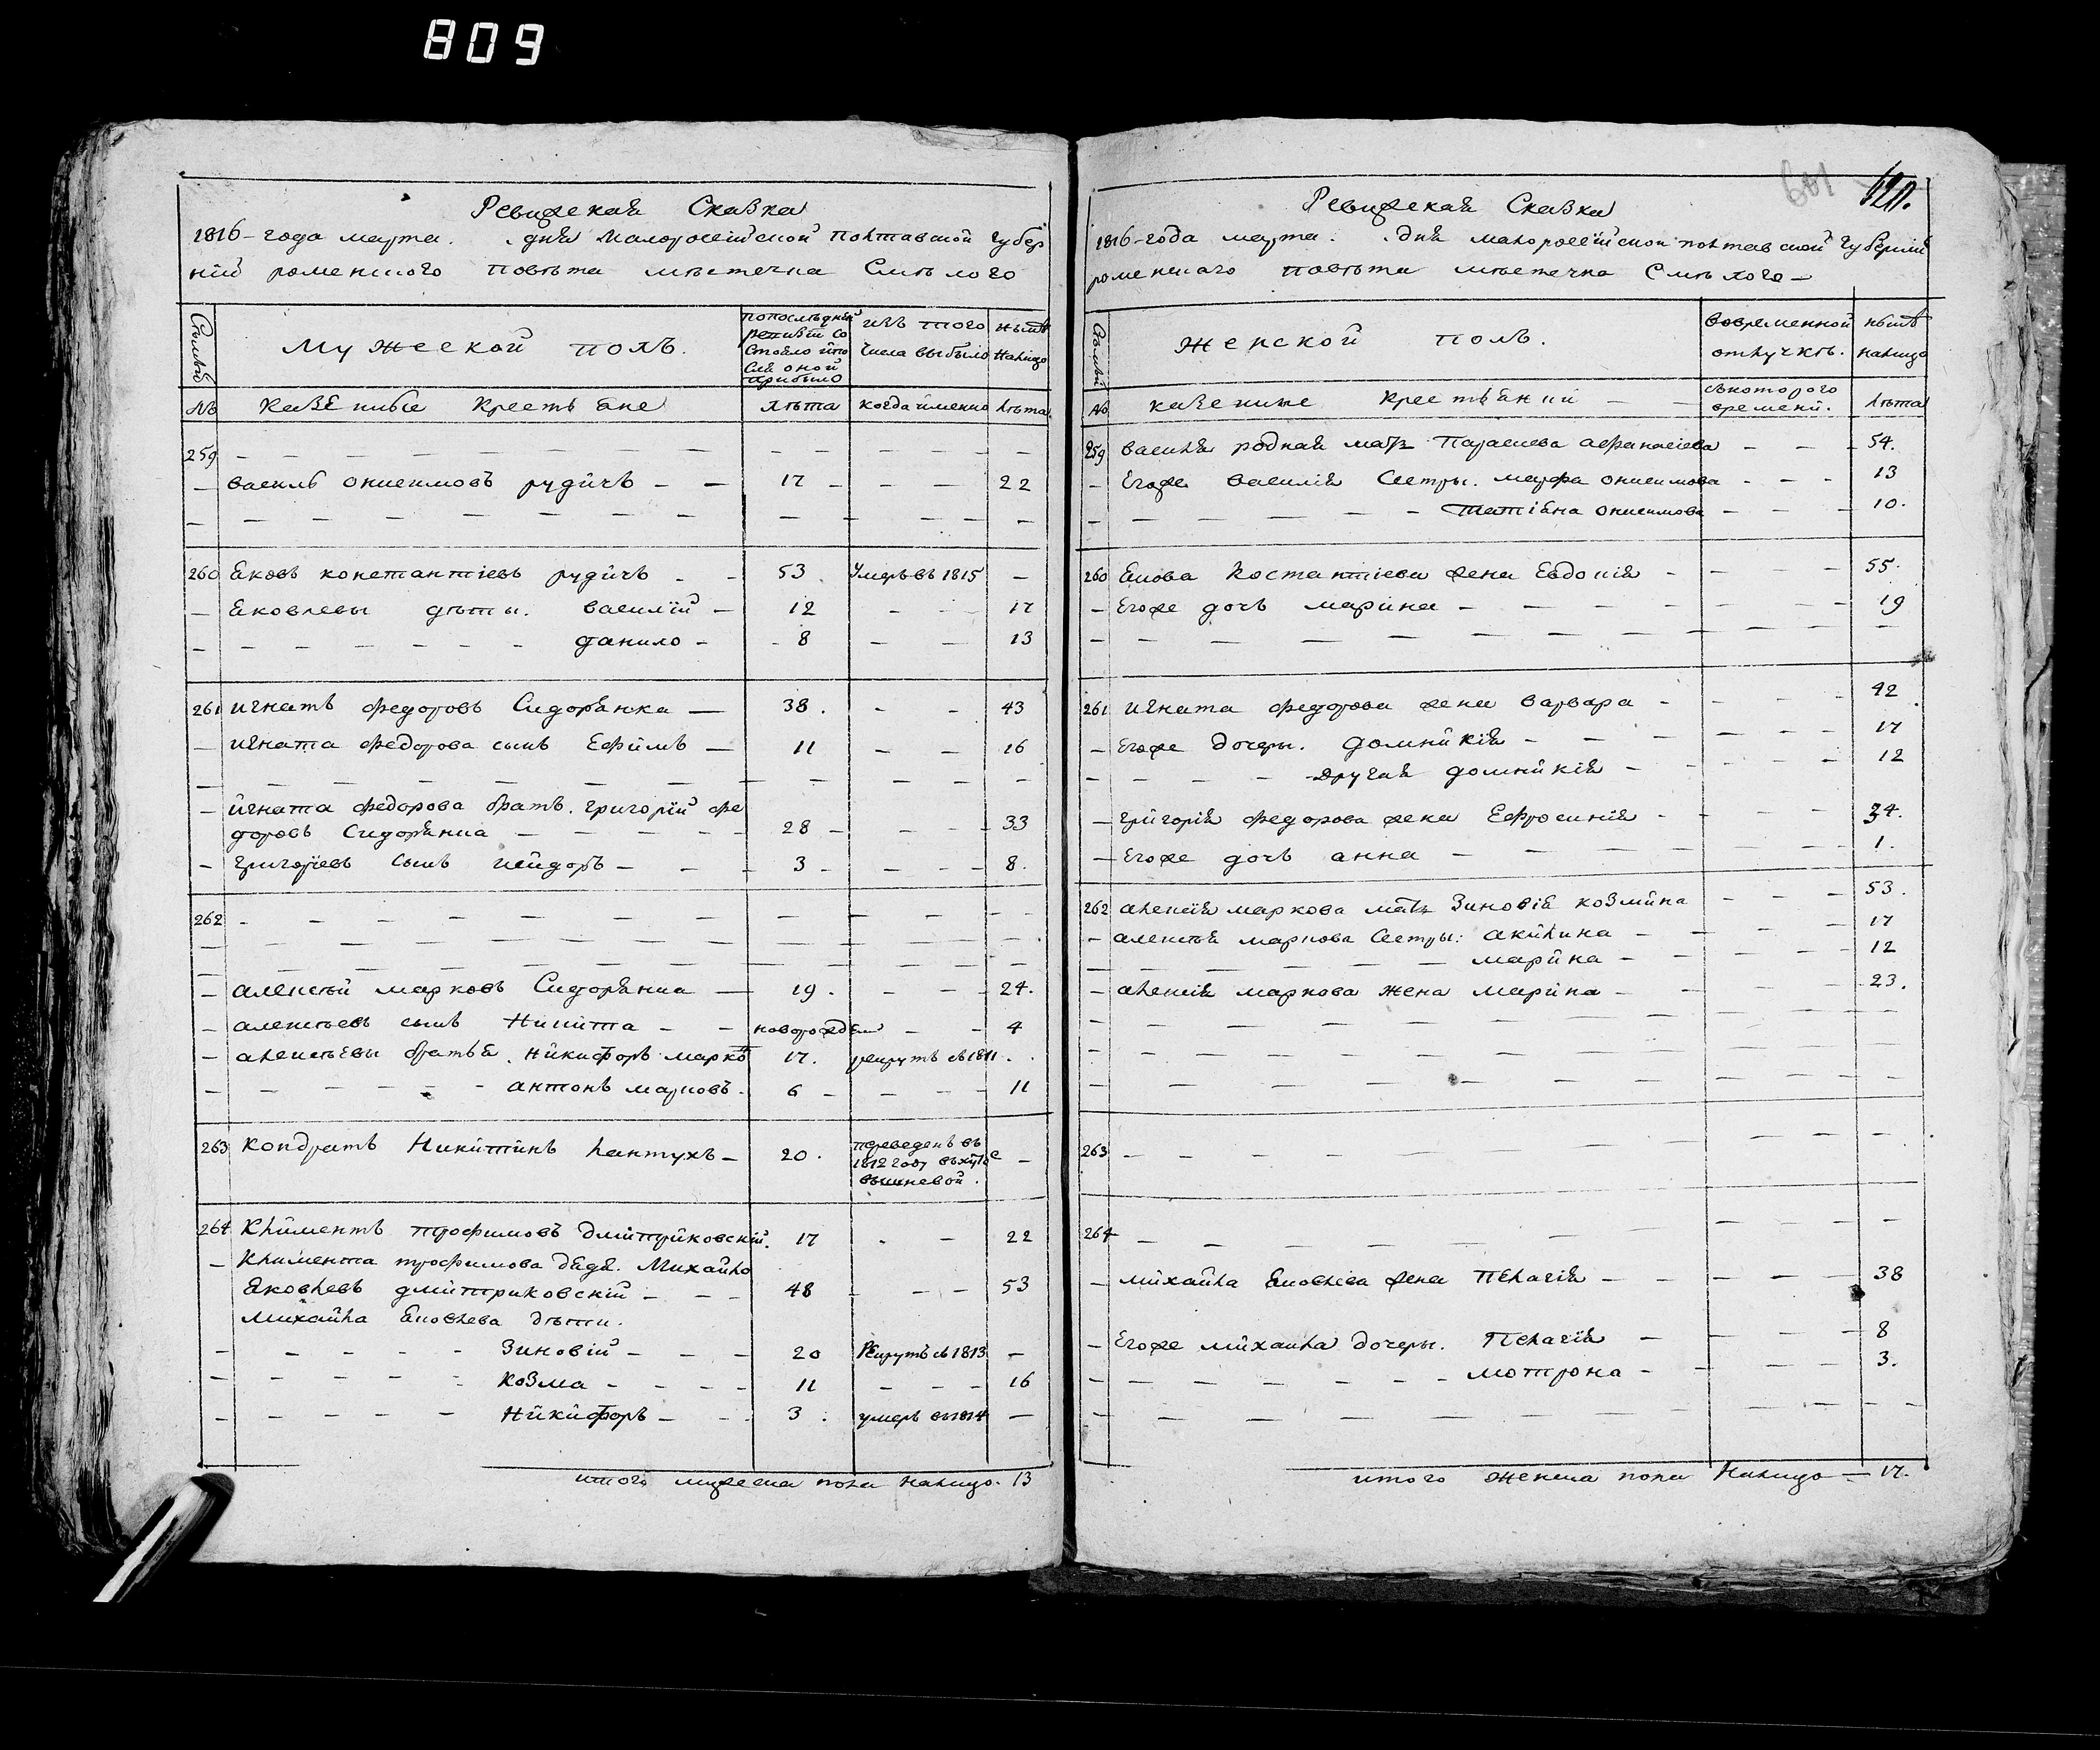 809
Ревизская Сказка
1816-года марта. дня Малоросийской Полтавской Губер
нии роменского повѣта мѣстечка Смѣлого
Мужеской полъ.
попослѣдней ревизии состояло и после оной прибыло
изъ того числа выбыло
нынѣ налицо
№ Казенные Крестьяне лѣта когда именно лѣта
259 — — — — — —
— василь онисимовъ рудичъ — — 17 — — — 22
260 Яковъ константіевъ рудичъ - - 53. Умеръ въ 1815 —
— Яковлевы дѣти. василій — 12 - - 17
— — — данило - 8 — — 13
261 игнатъ федоровъ Сидорянка — 38. - - 43
— игната федорова сынъ Ефимъ — 11 — — 16
— игната федорова братъ. григорій фе
доровъ Сидорянка — — 28 — — — 33
- григорiевъ сынъ исидоръ — - - 3 - — - 8.
262 - — — — — —
— алексѣй марковъ Сидорянка — 19. - — 24.
— алексѣевъ сынъ Никита - — новорожден — - 4
— алексѣевы братья. никифоръ марко 17. рекрутъ въ 1811.
— — — антонъ марковъ. 6 — — — 11
263 Кондратъ Никитинъ лантухъ — 20. переведенъ въ
1812 году въ хуто
вишневой.
264 Климентъ трофимовъ дмитриковскій. 17 - — 22
— Климента трофимова дядя. Михайло
Яковлевъ дмитриковскій — - — 48 - — 53
Михайла Яковлева дѣти.
— — — Зиновій — - — 20 Рекрутъ въ 1813 —
— — — козма - - - 11 - - - 16
— — — Никифоръ — - - 3. умеръ въ 1814 —
итого мужеска пола налицо. 13
601
Ревизская Сказка
1816-года марта. дня малоросійской полтавской губерніи
роменскаго повѣта мѣстечка Смѣлого —
Женской полъ.
вовременной отлучкѣ.
нынѣ налицо
№ казенные крестьянки — — съкоторого времени. лѣта
259 василя родная мать Параскева афанасіева — — — 54.
— Егоже василія Сестры. марфа онисимова - - - 13
— — — татіяна онисимова — — 10.
260 Якова Костантіева жена Евдокія - — — 55.
— Егоже дочь марина — — — 19
261 игната федорова жена варвара - - - 42
— Егоже дочеры. домникія - — — 17
— — — другая домникія - — — 12
— григорія федорова жена Ефросинія - — — 34.
— Егоже дочь анна — — — 1.
262 алексія маркова мать Зиновія козмина - — — 53.
— алексѣя маркова Сестры: акилина - — — 17
— — — марина - — — 12
— алексія маркова жена марина - — — 23.
263 — — — — — —
264 — — — — — —
— михайла Яковлева жена Пелагія — — — 38
— Егоже михайла дочеры. Пелагія — — — 8
— — — мотрона - — — 3.
итого женска пола налицо — 17.